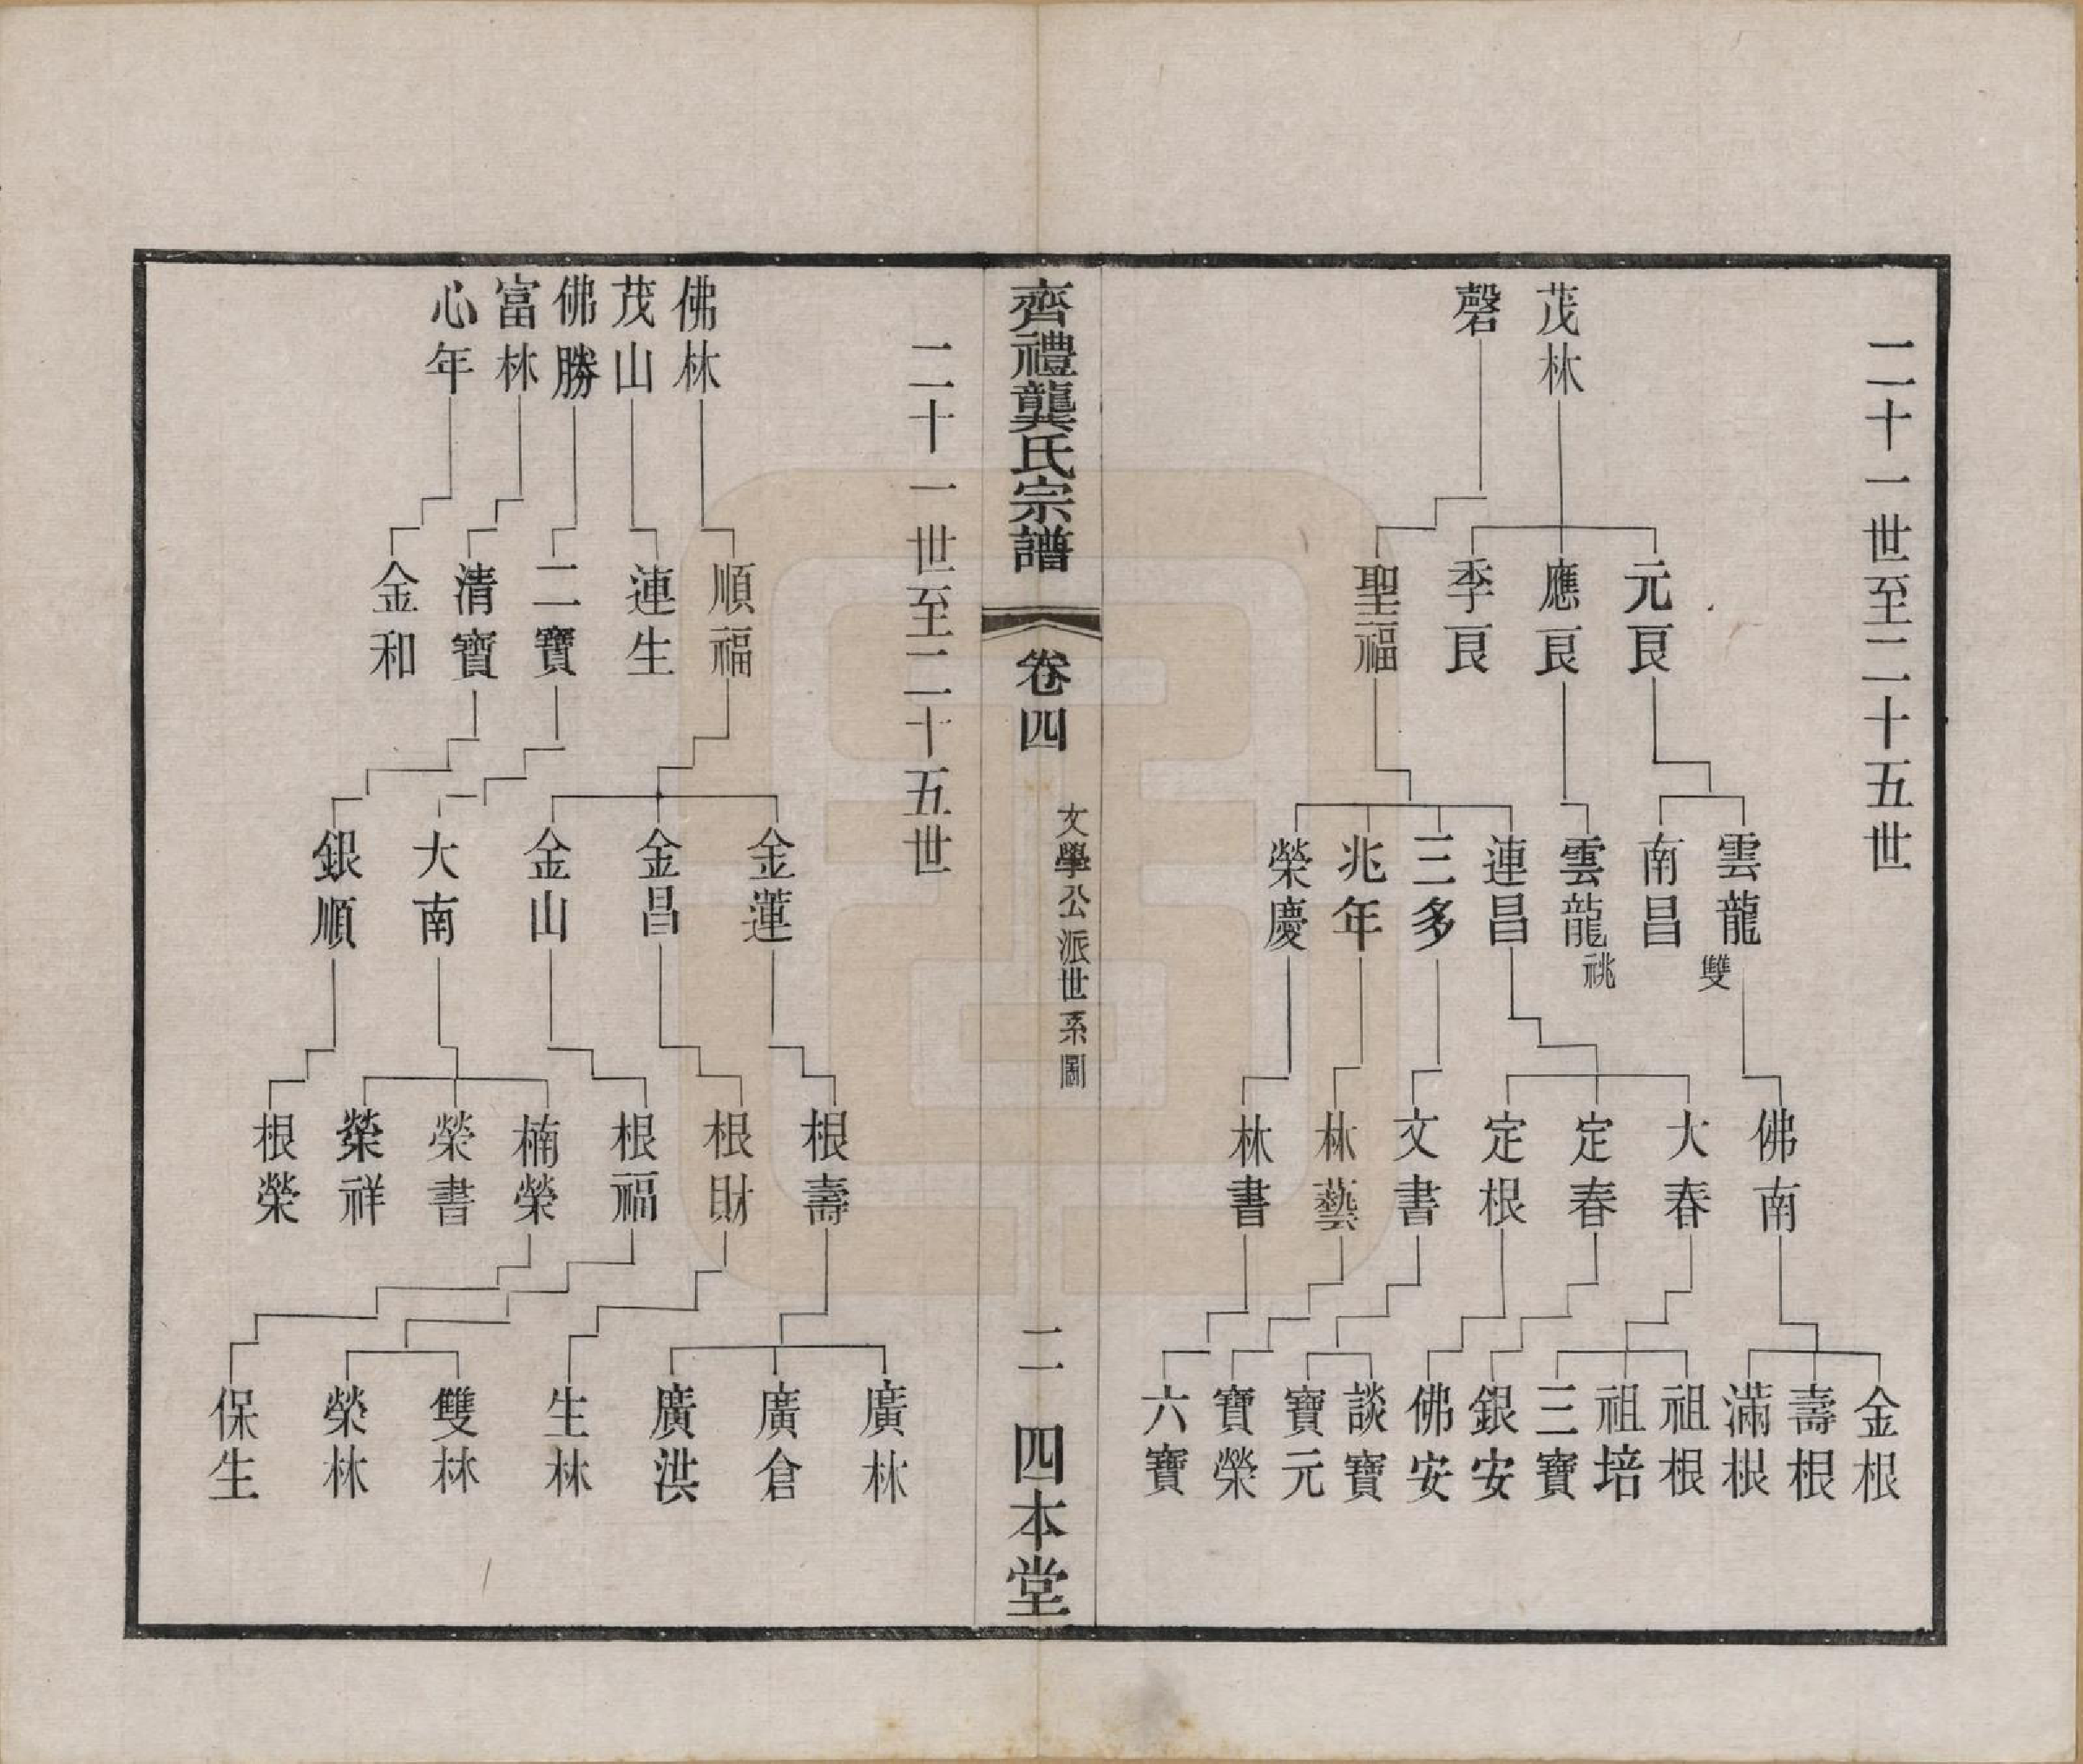 二十一世至二十五世
茂林
磬
元良
應良
季良
聖福
雲龍雙
南昌
雲龍祧
連昌
三多
兆年
榮慶
佛南
大春
定春
定根
文書
林藝
林書
金根
壽根
滿根
祖根
祖培
三寶
銀安
佛安
談寶
寶元
寶榮
六寶
齊禮龔氏宗譜
卷四
文學公派世系圖
二
四本堂
二十一世至二十五世
佛林
茂山
佛勝
富林
心年
順福
連生
二寶
清寶
金和
金蓮
金昌
金山
大南
銀順
根壽
根財
根福
楠榮
榮書
榮祥
根榮
廣林
廣倉
廣洪
生林
雙林
榮林
保生